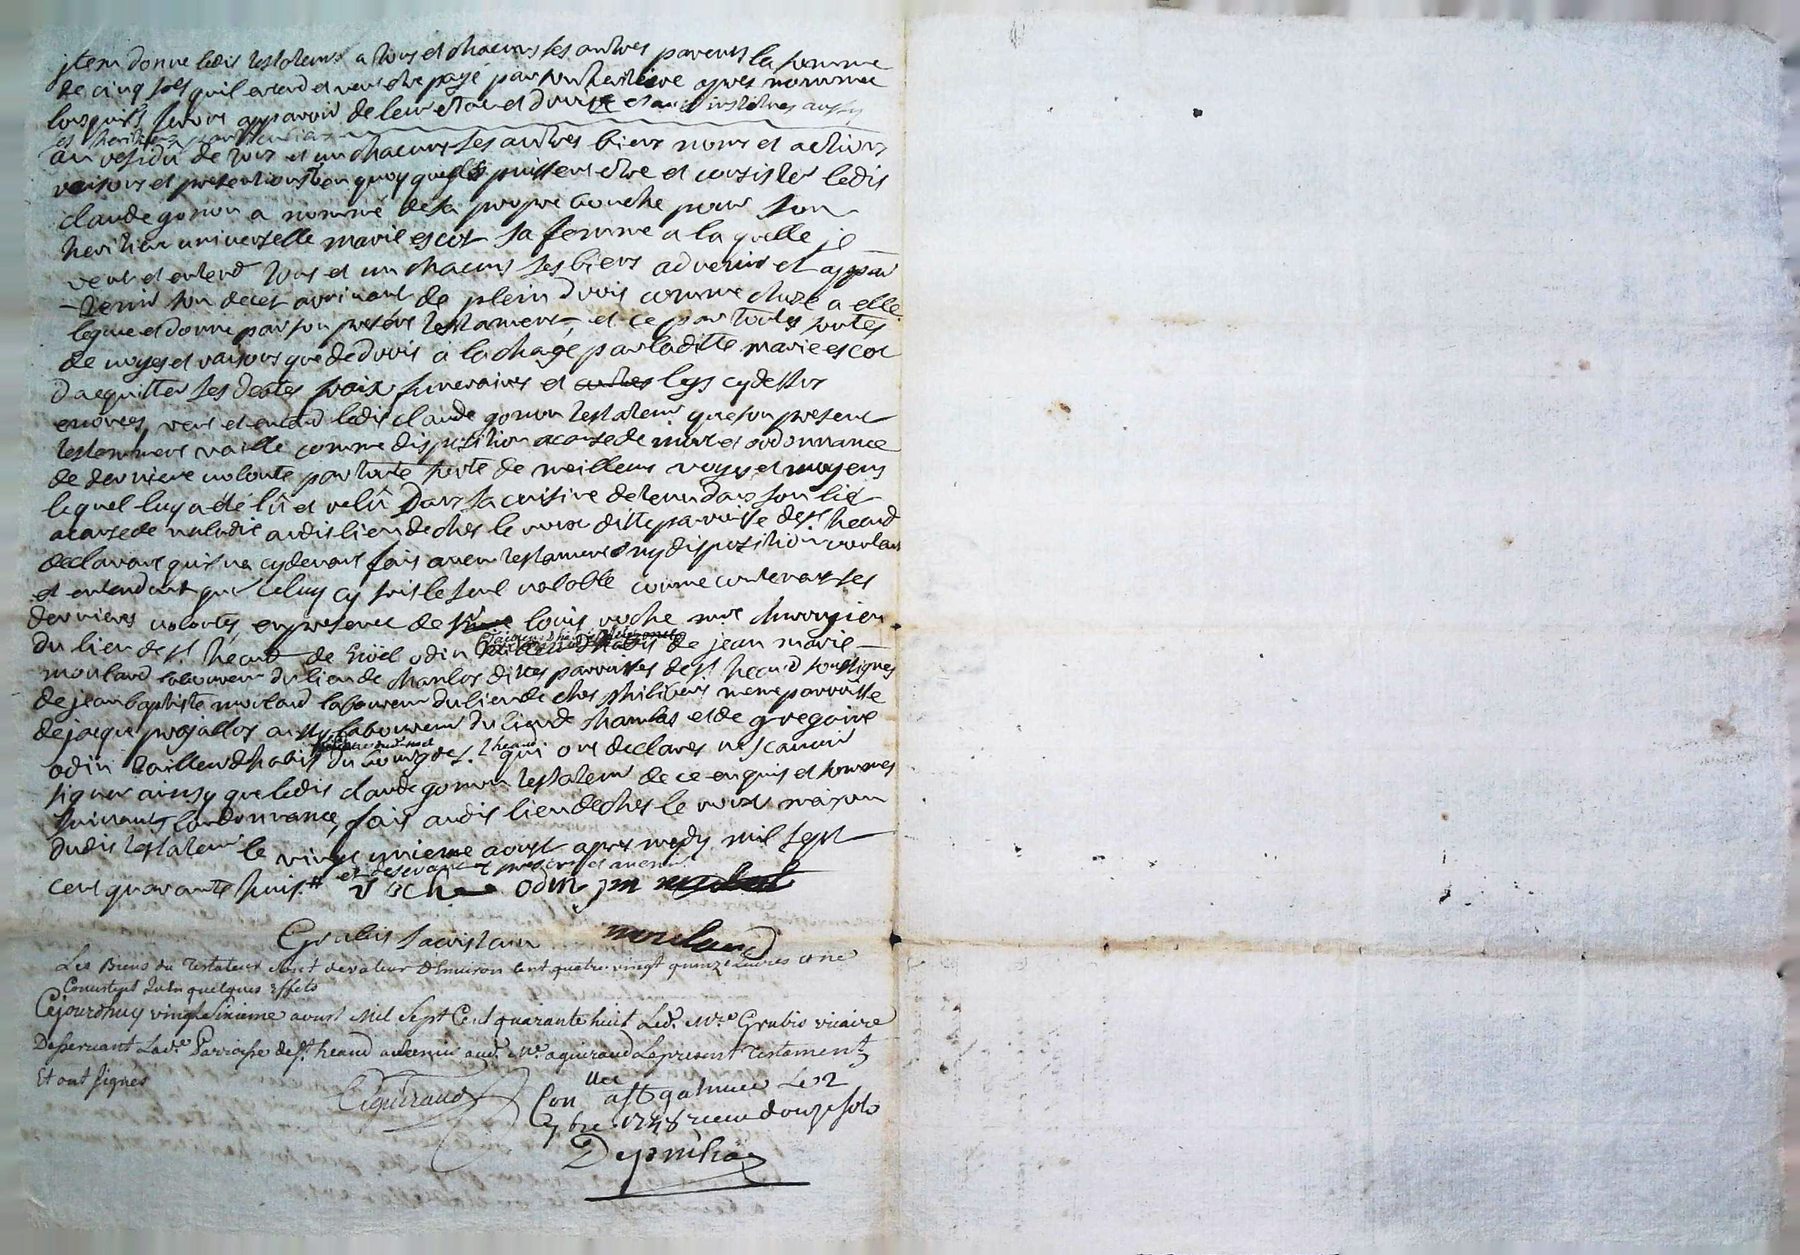 jtem donne ledit testateur a tous et chacuns ses autres parents la somme
de cinq sols quil entend et veut etre payé par son heritiere apres nommee
lorsquils feront apparoir de leur etat et droits et ainsi institues aussy
ses heritiers particuliers
au residu de tous et un chacuns ses autres biens noms et actions
raisons et pretentions en quoy quels puissent etre et consister ledit
claude gonon a nommé de sa propre bouche pour son
heritiere universelle marie escot sa femme a la quelle je
veut et entend tous et un chacuns ses biens advenir et appar
-tenir son decet arrivant de plein droit comme chose a elle
leguee et donne par son present testament, et ce par toutes sortes
de voyes et raisons que de droit a la charge par laditte marie escot
dacquitter ses dettes fraix funeraires et autres legs cy dessus
enoncés, veut et entend ledit claude gonon testateur que son present
testament vaille comme disposition a cause de mort et ordonnance
de derniere volonte par toute sorte de meilleurs voyes et moyens
lequel luy a été lû et relû Dans sa cuisine detenu dans son lit
a cause de maladie audit lieu de ches le roux ditte parroisse de st heand
declarant quil na cy devant fait aucun testament ny disposition voulant
et entendant que celuy cy soit le seul valable comme contenant ses
dernieres volontes, en presence de louis roche me chirurgien
du lieu de st heand de noel odin tailleur dhabit de jean marie
moulard laboureur du lieu de chambos dittes parroisses de st heand soussignes
de jean baptiste moulard laboureur du lieu de ches philibert meme parroisse
de jacque projallor aussy laboureur du lieu de chambos et de gregoire
odin tailleur dhabit du bourg de st heand qui ont declarés ne scavoir
signer ainsy que ledit claude gonon testateur de ce enquis et sommes
suivant lordonnance, fait audit lieu de ches le roux maison
dudit testateur le vingt unieme aoust apres midy mil sept
cent quarante huit #
roche odin jm moulard
Grubis moulard
Les Biens du testateur sont de valeur Denviron cent quatre vingt quinze Livres et ne
Consistent qu'en quelques Effets
Cejourdhuy vingt sixieme aoust Mil Sept Cent quarante huit Led. Mre Grubis vicaire
Desservant Lade Parroisse de st heand a remis aud. Me aguiraud Le present Testament
Et ont signés
Aguiraud
Con lle a st galmier Le 2
7bre 1748 recu douze sols